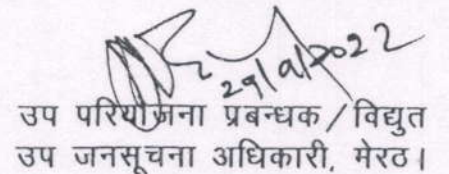 29/9/2022
उप परियोजना प्रबन्धक / विद्युत
उप जनसूचना अधिकारी, मेरठ।